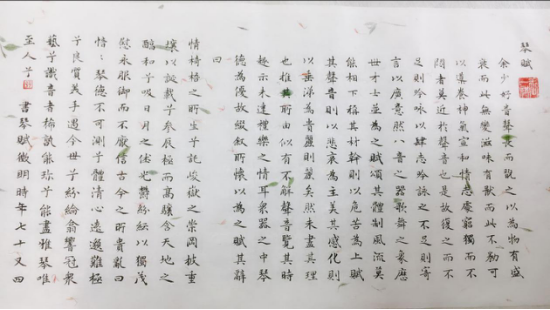 琴賦
余少好音聲長而翫之以為物有盛
衰而此無變滋味有猒而此不勌可
以導養神氣宣和情志處窮獨而不
悶者莫近於音聲也是故復之而不
足則吟詠以肆志吟詠之不足則寄
言以廣意然八音之器歌舞之象歷
世才士並為之賦頌其體制風流莫
能相下稱其材幹則以危苦為上賦
其聲音則以悲哀為主美其感化則
以垂涕為貴麗則麗矣然未盡其理
也推其所由似有不解聲音覽其時
趣亦未達禮樂之情耳衆器之中琴
德為優故綴叙所懷以為之賦其辭
曰
情椅梧之所生兮託峻嶽之崇岡披重
壤以誕載兮參辰極而高驤含天地之
醇和兮吸日月之休光鬱紛紜以獨茂
慰永服御而不厭信古今之所貴亂曰
愔愔琴德不可測兮體清心遠邈難極
兮良質美手遇今世兮紛綸翕響冠衆
藝兮識音者稀孰能珍兮能盡雅琴唯
至人兮 書琴賦徵明時年七十又四